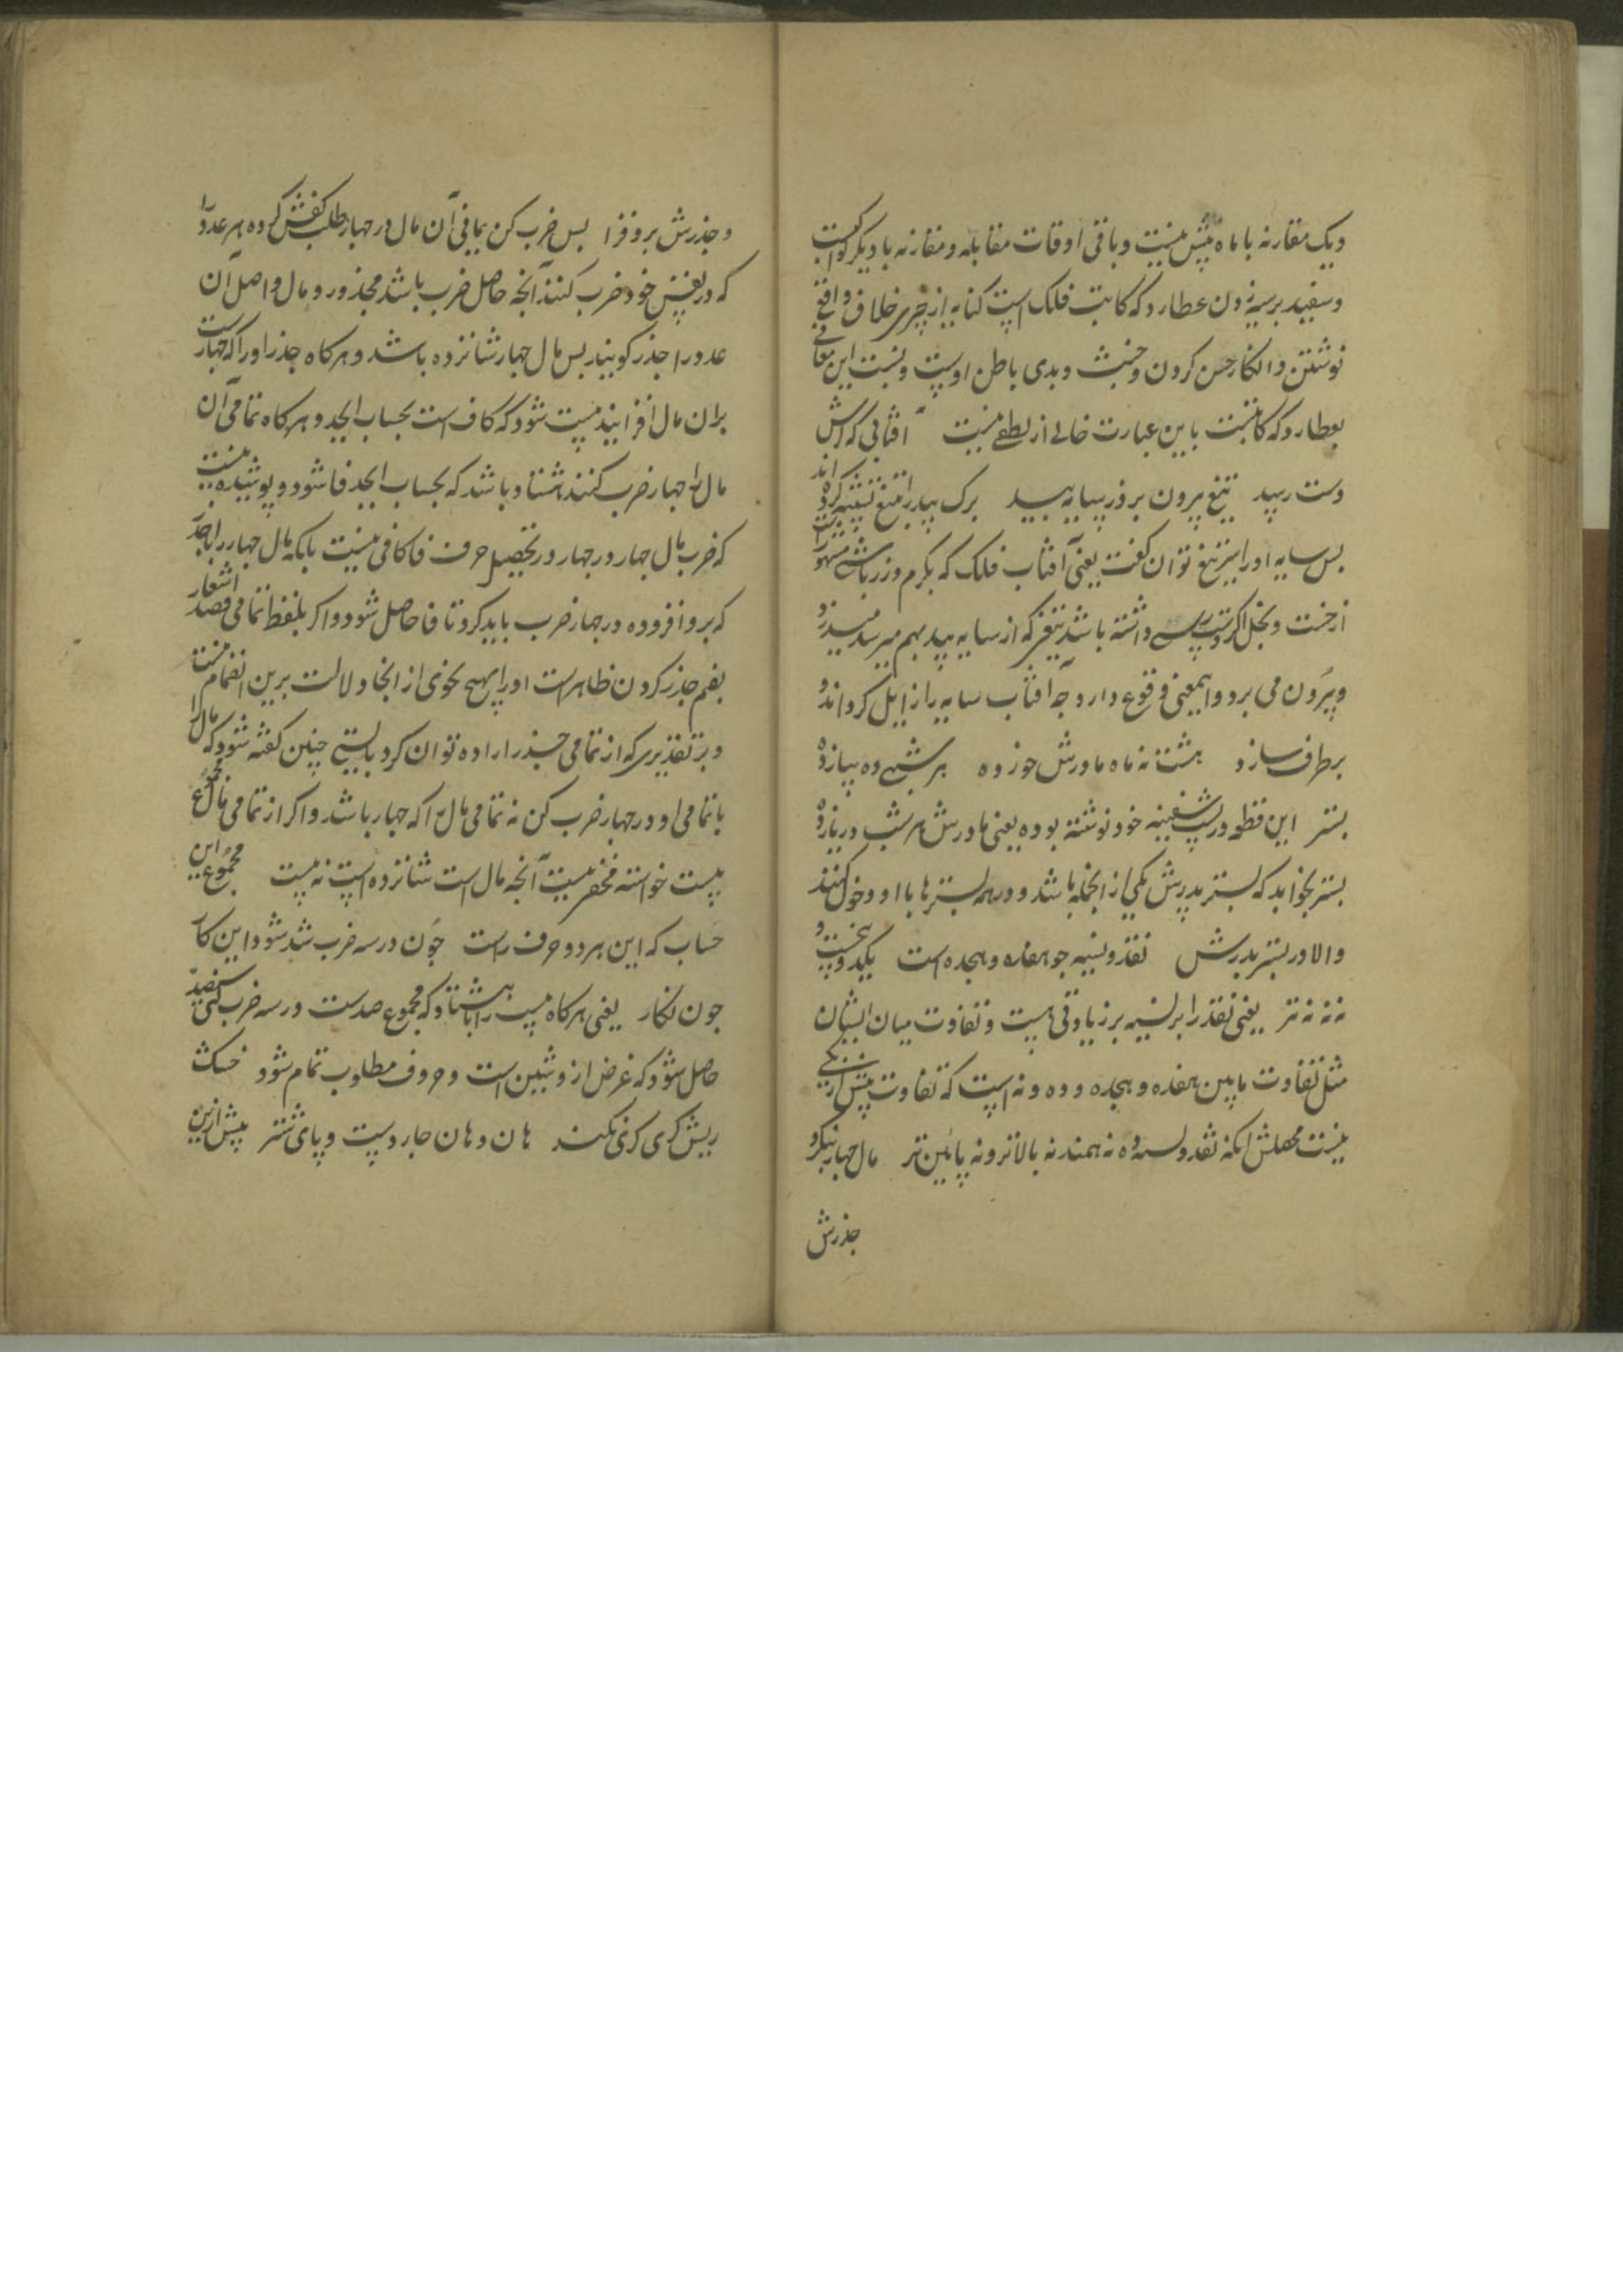 ویک مقارنه با ماه پیش نیست وباقی اوقات مقابله ومقارنه با دیکر کواکبست
وسفید برسیه زدن عطارد که کاتب فلک است کنایه از چیزی خلاف واقع
نوشتن وانکار حسن کردن وخبث وبدی باطن اوست ونسبت این معانی
بعطارد که کاتبست باین عبارت خالی از لطفی نیست آفتابی که از
دست رسید تیغ بیرون برد ز سایه بید برک بید را بتیغ تشبیه کرده اند
بس سایه اورا نیز تیغ توان کفت یعنی آفتاب فلک که بکرم وزرپاشی مشهورست
از خست وبخل اکر دست رسی داشته باشد تیغی که از سایه بید بهم میرسد میدزدد
وبیرون می برد واینمعنی وقوع دارد چه آفتاب سایه را زایل کرداند و
برطرف سازد هشت نه ماه مادرش خورده هر شبی ده بیازده
بستر این قطعه در پشت سفینه خود نوشته بوده یعنی مادرش هر شب در یازده
بستر بخوابد که بستر پدرش یکی از انجمله باشد ودر همه بسترها با او دخول کنند
والا در بستر پدرش نقد ونسیه چو هفده وهجده است یکدو بیست و
نه نه نه تر یعنی نقد را بر نسیه برزیادتی هست وتفاوت میان ایشان
مثل تفاوت مابین هفده وهجده وده ونه است که تفاوت بیش از یکی
نیست محصلش انکه نقد ونسیه ده نه همند نه بالاتر ونه پائین تر مال چهار نیکرد
جذرش
وجذرش برو فزا بس ضرب کن بمافی آن مال در چهار طلب کفش کرده هر عدد را
که در نفس خود ضرب کنند آنچه حاصل ضرب باشد مجذور ومال واصل آن
عدد را جذر کویند بس مال چهار شانزده باشد وهرکاه جذر اورا که چهارست
بران مال افزایند بیست شود که کاف است بحساب ابجد وهرکاه تمامی آن
مال را چهار ضرب کنند هشتاد باشد که بحساب ابجد فا شود وپوشیده نیست
که ضرب مال چهار در چهار در تحصیل حرف فا کافی نیست بلکه مال چهار را با جذر
که برو افزوده در چهار ضرب باید کرد تا فا حاصل شود واکر بلفظ تمامی قصد اشعار
بضم جذر کردن ظاهر است اورا بهیچ نحوی از انحا دلالت برین انضمام نیست
وبر تقدیری که از تمامی جذر اراده توان کرد بایستی چنین کفته شود که مال را
با تمامی او در چهار ضرب کن نه تمامی مال را که چهار باشد واکر از تمامی مال مجموع
بیست خواسته مخفی نیست آنچه مال است شانزده است نه بیست مجموع این
حساب که این هر دو حرف راست چون در سه ضرب شد شود این کار
چون نکار یعنی هرکاه بیست را با هشتاد که مجموع صدست در سه ضرب کنی سیصد
حاصل شود که غرض ازو شین است وحروف مطلوب تمام شود خسک
ریش کری کری نکند هان وهان چار دست وپای شتر پیش ازین